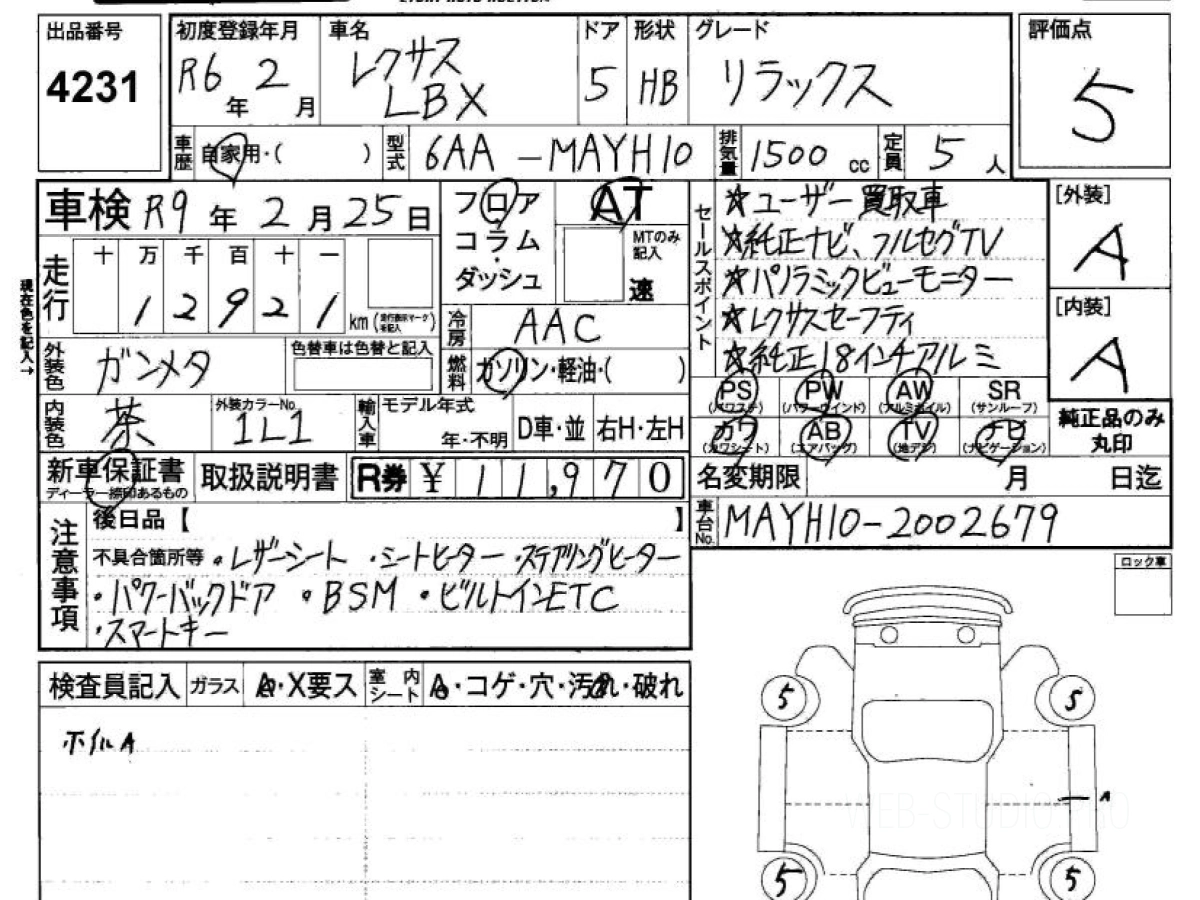 出品番号
4231
初度登録年月
R6年 2月
車名
レクサス
LBX
ドア
5
形状
HB
グレード
リラックス
評価点
5
車歴
自家用・( )
型式
6AA-MAYH10
排気量
1500 cc
定員
5人
車検 R9年 2月 25日
フロア
コラム
ダッシュ
AT
MTのみ
記入
速
セールスポイント
☆ユーザー買取車
☆純正ナビ、フルセグTV
☆パノラミックビューモニター
☆レクサスセーフティ
☆純正18インチアルミ
[外装]
A
[内装]
A
現在色を記入→
走行
十 万 千 百 十 一
1 2 9 2 1
km (走行表示マークを記入)
冷房
AAC
外装色
ガンメタ
色替車は色替と記入
燃料
ガソリン・軽油・( )
PS
(パワステ)
PW
(パワーウインド)
AW
(アルミホイル)
SR
(サンルーフ)
カワ
(カワシート)
AB
(エアバッグ)
TV
(地デジ)
ナビ
(ナビゲーション)
純正品のみ
丸印
内装色
茶
外装カラーNo.
1L1
輸入車
モデル年式
年・不明
D車・並
右H・左H
新車保証書
ディーラー捺印あるもの
取扱説明書
R券 ¥ 11,970
名変期限 月 日迄
車台No.
MAYH10-2002679
注意事項
後日品【 】
不具合箇所等 ・レザーシート ・シートヒーター ・ステアリングヒーター
・パワーバックドア ・BSM ・ビルトインETC
・スマートキー
ロック車
検査員記入
ガラス
A・X要ス
室内シート
A・コゲ・穴・汚れ・破れ
ホイルA
5
5
A
WEB-STUDIO.PRO
5
5